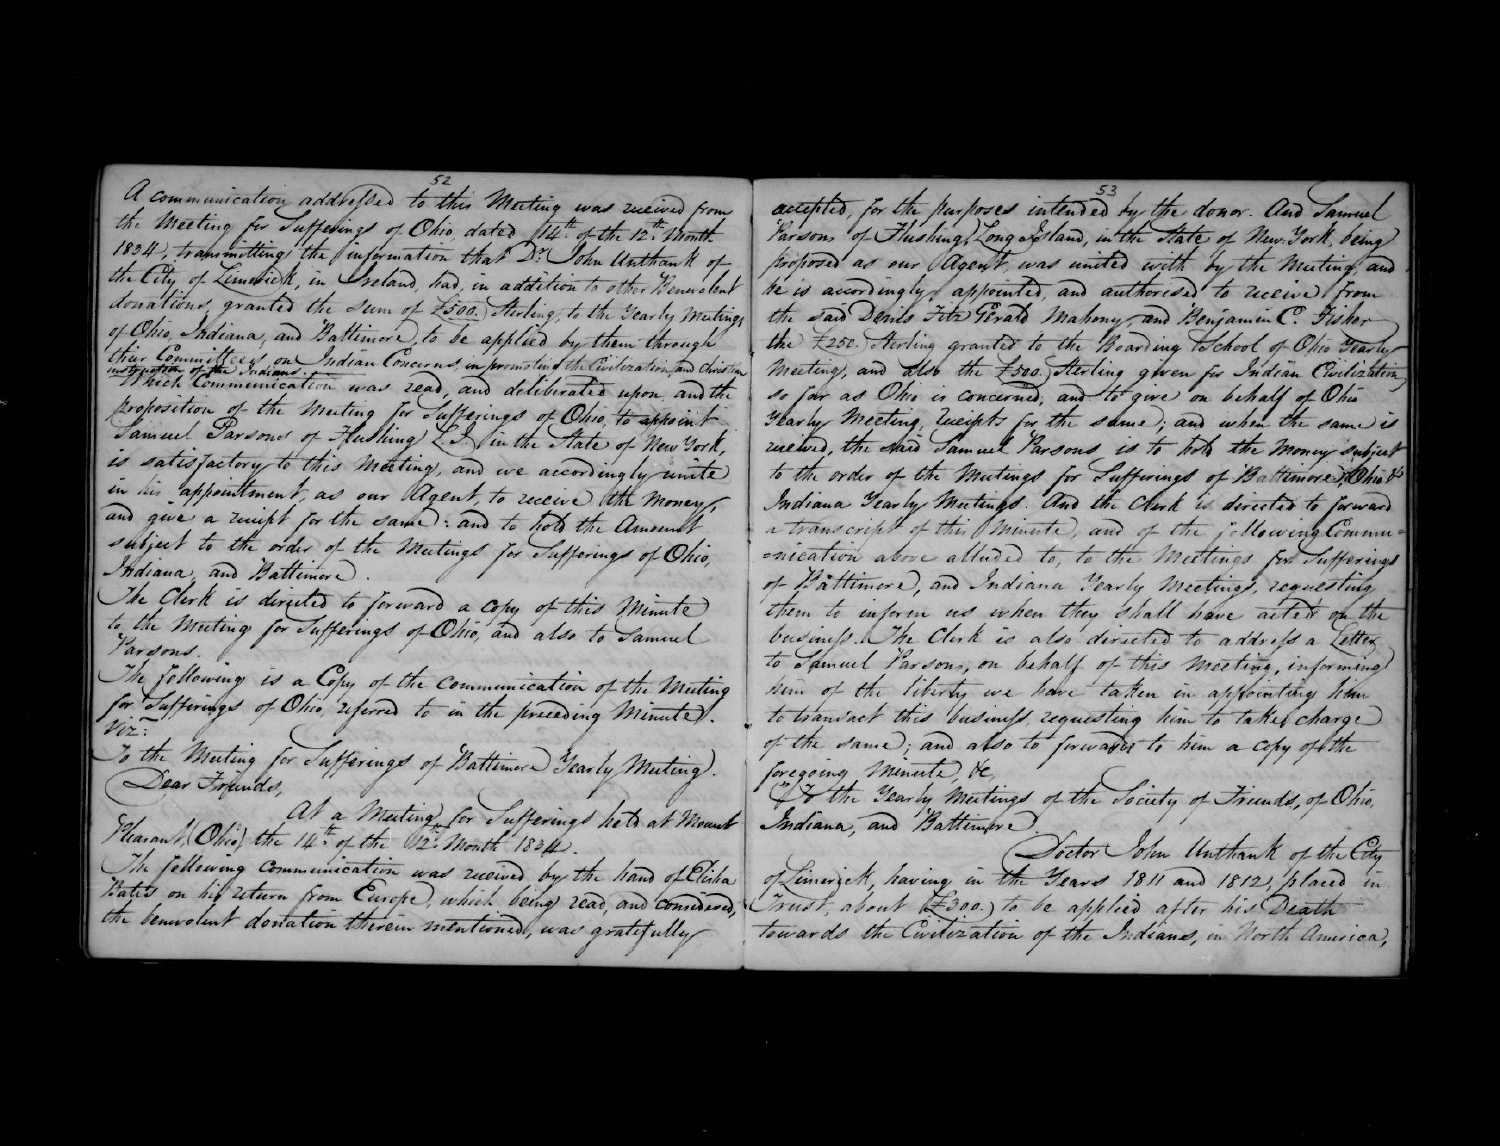 52
A communication addressed to this Meeting was received from
the Meeting for Sufferings of Ohio, dated 14th of the 12th Month
1834, transmitting the information that Dr. John Unthank of
the City of Limerick, in Ireland, had, in addition to other Benevolent
donations, granted the sum of £500. Sterling, to the Yearly Meetings
of Ohio, Indiana, and Baltimore, to be applied by them through
their Committees on Indian Concerns, in promoting the Civilization, and Christian
instruction of the Indians.
Which Communication was read, and deliberated upon, and the
proposition of the Meeting for Sufferings of Ohio, to appoint
Samuel Parsons of Flushing L.I. in the State of New York,
is satisfactory to this Meeting, and we accordingly unite
in his appointment, as our Agent, to receive the Money,
and give a receipt for the same: and to hold the Amount
subject to the order of the Meetings for Sufferings of Ohio,
Indiana, and Baltimore.
The Clerk is directed to forward a copy of this Minute
to the Meeting for Sufferings of Ohio, and also to Samuel
Parsons.
The following is a Copy of the communication of the Meeting
for Sufferings of Ohio, referred to in the preceding Minute.
Viz:
To the Meeting for Sufferings of Baltimore Yearly Meeting.
Dear Friends,
At a Meeting for Sufferings held at Mount
Pleasant, (Ohio) the 14th of the 12th Month 1834.
The following communication was received by the hand of Elisha
Bates on his return from Europe, which being read, and considered,
the benevolent donation therein mentioned, was gratefully
53
accepted, for the purposes intended by the donor. And Samuel
Parsons of Flushing, Long Island, in the State of New-York, being
proposed as our Agent, was united with by the Meeting, and
he is accordingly appointed, and authorised to receive from
the said Denis Fitz Gerald Mahony, and Benjamin C. Fisher
the £250. Sterling granted to the Boarding School of Ohio Yearly
Meeting, and also the £500. Sterling given for Indian Civilization
so far as Ohio is concerned; and to give on behalf of Ohio
Yearly Meeting, receipts for the same; and when the same is
received, the said Samuel Parsons is to hold the Money subject
to the order of the Meetings for Sufferings of Baltimore, Ohio &
Indiana Yearly Meetings. And the Clerk is directed to forward
a transcript of this Minute, and of the following Commu=
=nication above alluded to, to the Meetings for Sufferings
of Baltimore, and Indiana Yearly Meetings, requesting
them to inform us when they shall have acted on the
business. The Clerk is also directed to address a Letter
to Samuel Parsons, on behalf of this Meeting, informing
him of the liberty we have taken in appointing him
to transact this business, requesting him to take charge
of the same; and also to forward to him a copy of the
foregoing Minute, &c,
"To the Yearly Meetings of the Society of Friends, of Ohio,
Indiana, and Baltimore.
Doctor John Unthank of the City
of Limerick, having in the Years 1811 and 1812, placed in
Trust, about (£300.) to be applied after his Death
towards the Civilization of the Indians, in North America,